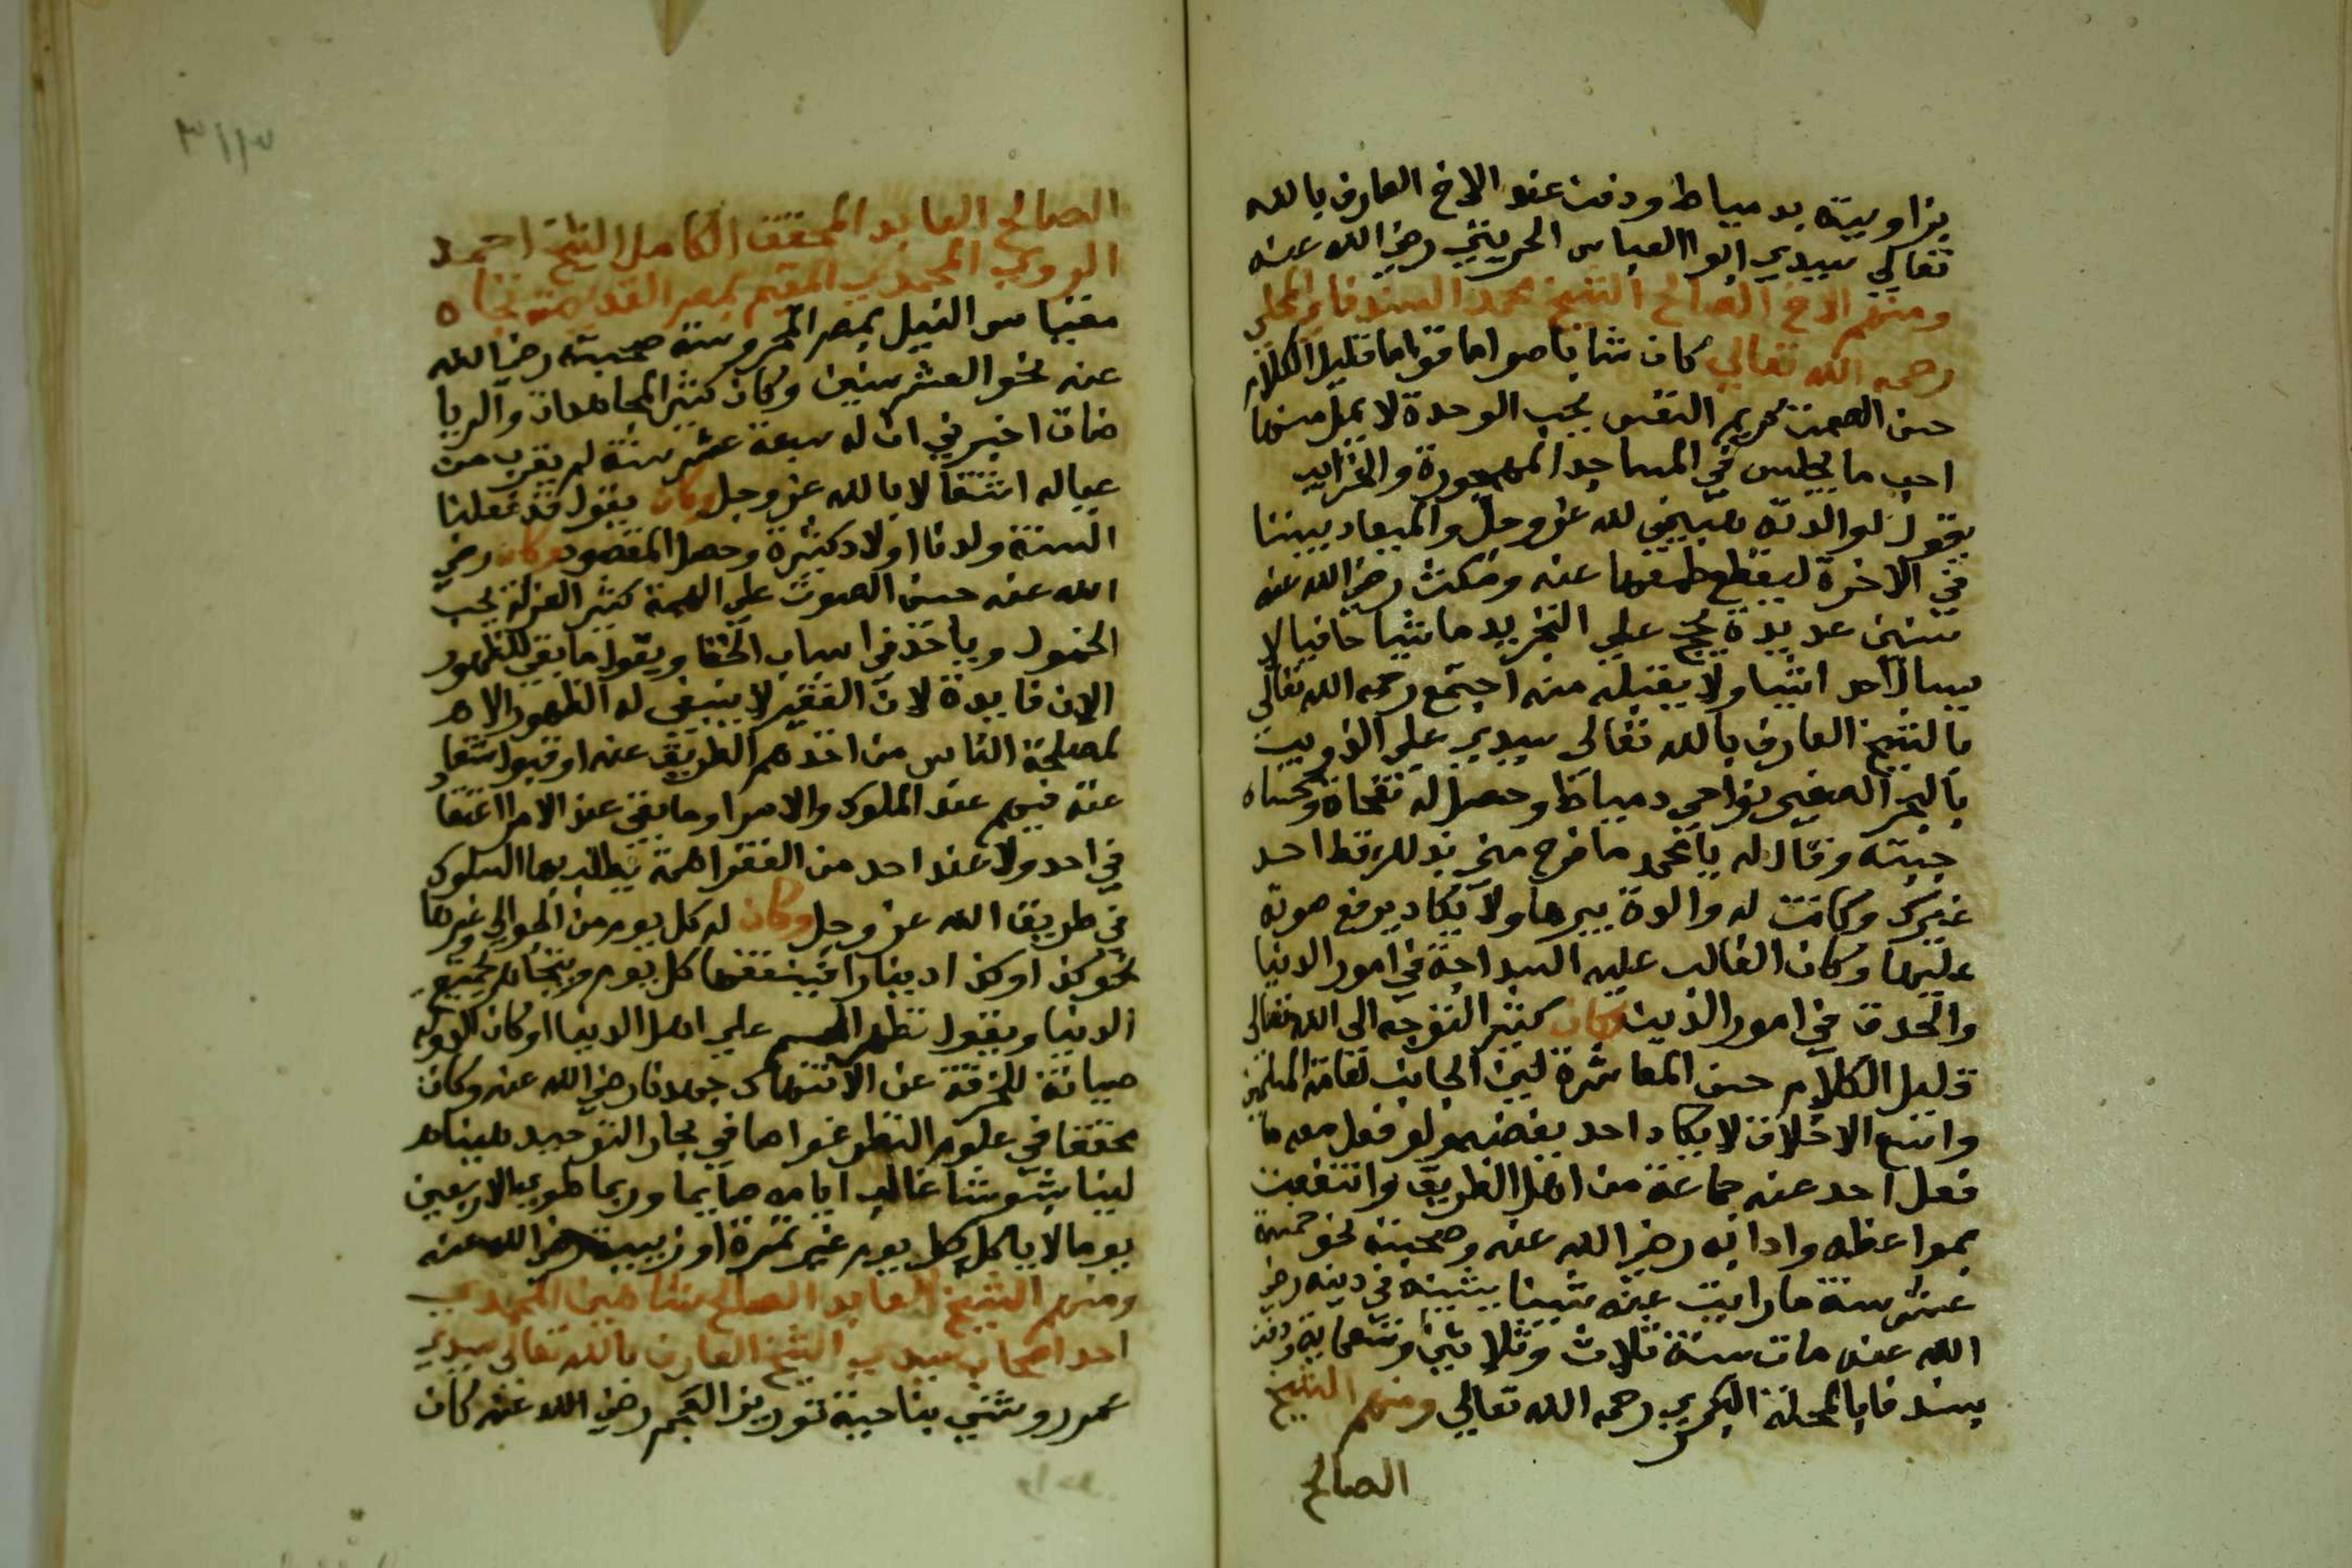 بزاويته بدمياط ودفن عند الاخ العارف بالله
تعالي سيدي ابوا العباس الحريثي رضي الله عنه
ومنهم الاخ الصالح الشيخ محمد السندفاوي المحلي
رحمه الله تعالي كان شابا صواما قواما قليل الكلام
حسن الصمت كريم النفس يحب الوحدة لا يمل منها
احب ما يجلس في المساجد المهجورة والخرايب
يقول لوالدته هبيني لله عز وجل والميعاد بيننا
في الاخرة ليقطع طمعها عنه ومكث رضي الله عنه
سنين عديدة يحج علي التجريد ماشيا حافيا لا
يسال احد اشيا ولا يقبله منه اجتمع رحمه الله تعالي
بالشيخ العارف بالله تعالي سيدي علي الدويب
بالبحر الصغير بنواحي دمياط وحصل له نفحاة وكساه
جبته وقال له يا محمد ما فرح مني بذلك قط احد
غيرك وكانت له والدة يبرها ولا يكاد يرفع صوته
عليها وكان الغالب عليه السداجة في امور الدنيا
والحدق في امور الدين وكان كثير التوجه الي الله تعالي
قليل الكلام حسن المعاشرة لين الجانب لعامة المسلمين
واسع الاخلاق لا يكاد احد يغضبه ولو فعل معه ما
فعل احد عنه جماعة من اهل الطريق وانتفعت
بمواعظه وادابه رضي الله عنه وصحبته نحو خمسة
عشر سنة ما رايت عنه شيئا يشينه في دينه رضي
الله عنه مات سنة ثلاث وثلاثين وتسعماية ودفن
بسندفا بالمحلة الكبري رحمه الله تعالي ومنهم الشيخ
الصالح
٣١٣
الصالح العابد المحقق الكامل الشيخ احمد
الرومي المحمدي المقيم بمصر القديمة تجاه
مقياس النيل بمصر المحروسة صحبته رضي الله
عنه نحو العشر سنين وكان كثير المجاهدات والريا
ضات اخبرني ان له سبعة عشر سنة لم يقرب من
عياله اشتغالا بالله عز وجل وكان يقول قد فعلنا
السنة ولدنا اولاد كثيرة وحصل المقصود وكان رضي
الله عنه حسن الصوت علي الهمة كثير العزلة يحب
الخمول وياخذ في اسباب الخفا ويقول ما بقي للظهور
الان فايدة لان الفقير لا ينبغي له الظهور الا هر
لمصلحة الناس من اخذهم الطريق عنه او قبول شفا
عته فيهم عند الملوك والامرا وما بقي عند الامرا اعتقا
في احد ولا عند احد من الفقرا همة يطلب بها السلوك
في طريق الله عز وجل وكان له كل يوم من الجوالي وغيرها
نحو كذا وكذا دينارا فينفقها كل يوم لجميع
الدنيا ويقول نظهر علي اهل الدنيا وكان
صيانة للخرقة عن الانتهاك جهدنا رضي الله عنه وكان
محققا في علوم النظر غواصا في بحار التوحيد هينا هر
لينا بشوشا غالب ايامه صايما وربما طوي الاربعين
يوما لا ياكل كل يوم غير تمرة او زبيبة رضي الله عنه
ومنهم الشيخ العابد الصالح شاهين المحمدي
احد اصحاب سيدي الشيخ العارف بالله تعالي سيدي
عمر روشني بناحية توريز العجم رضي الله عنه كان